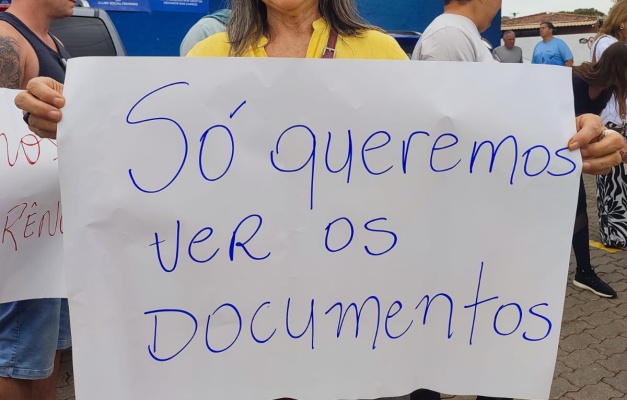 Só queremos
ver os
Documentos